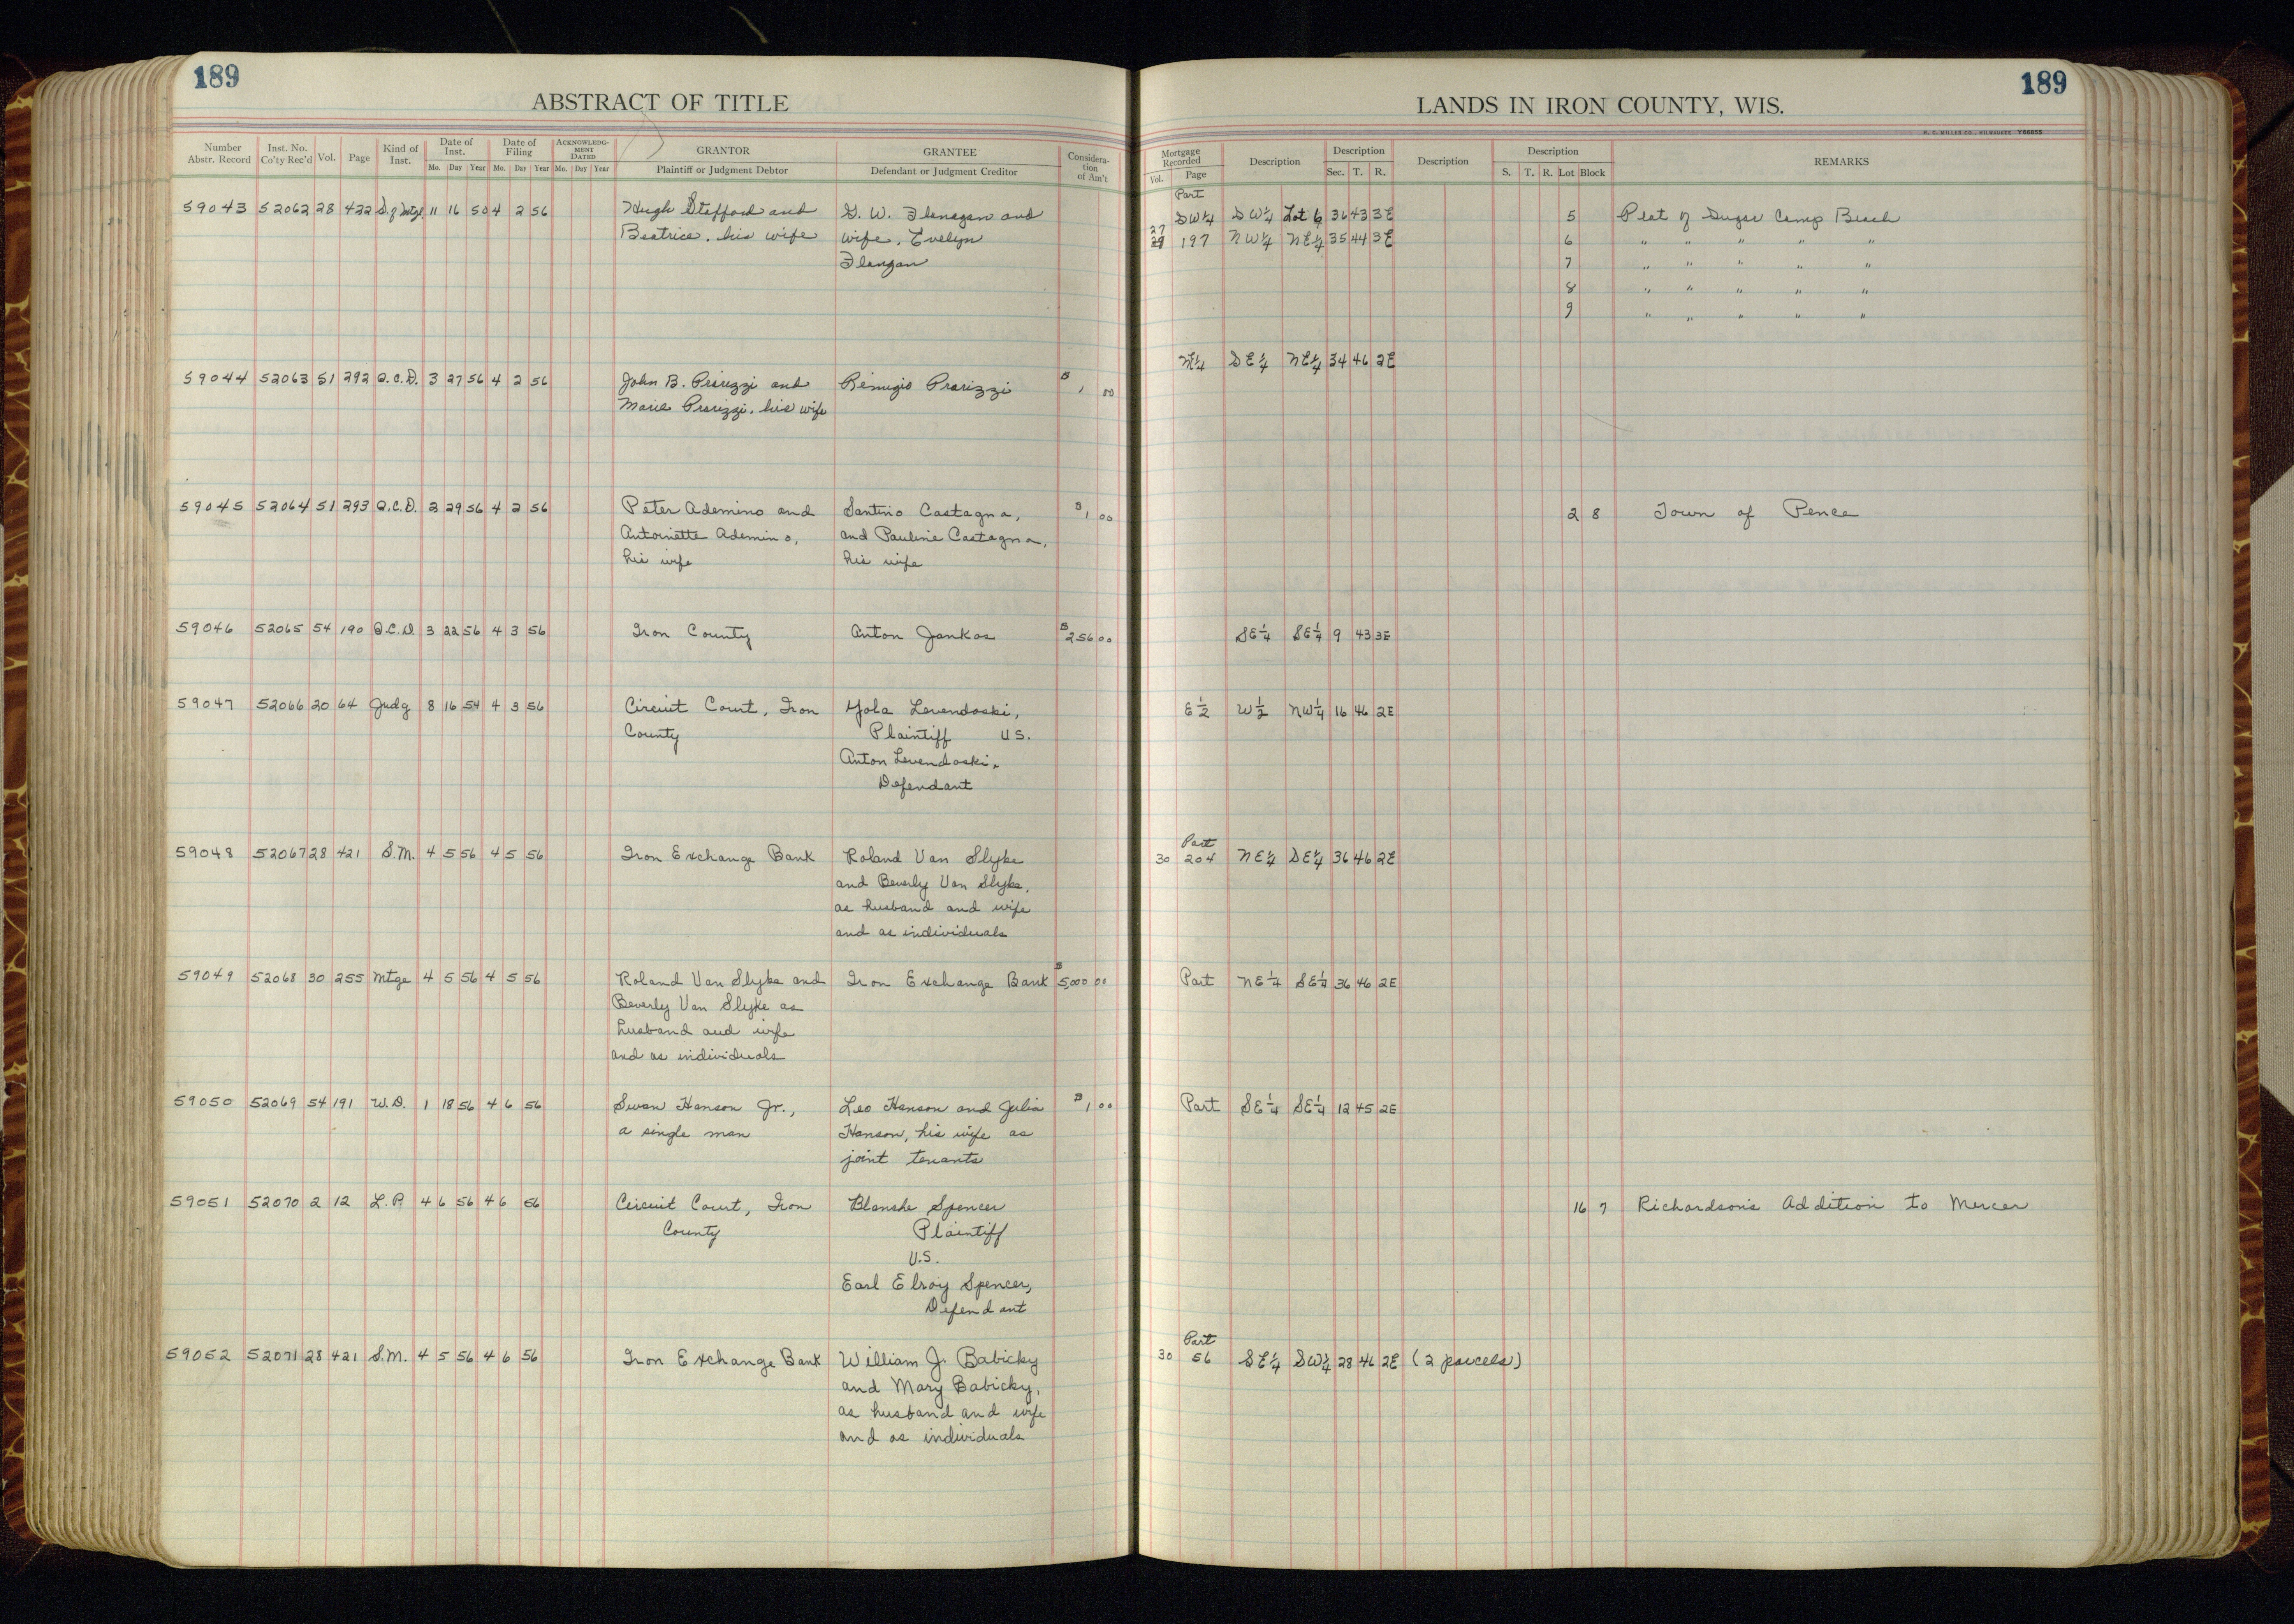 189
ABSTRACT OF TITLE
Number Abstr. Record Inst. No. Co'ty Rec'd Vol. Page Kind of Inst. Date of Inst. Mo. Day Year Date of Filing Mo. Day Year ACKNOWLEDGMENT DATED Mo. Day Year GRANTOR Plaintiff or Judgment Debtor GRANTEE Defendant or Judgment Creditor Consideration of Am't
59043 52062 28 422 S. of Mtge. 11 16 50 4 2 56 Hugh Stafford and G. W. Flanagan and
Beatrice, his wife wife, Evelyn
Flangan
59044 52063 51 292 Q.C.D. 3 27 56 4 2 56 John B. Prarizzi and Remigio Prarizzi $1 00
Marie Prarizzi, his wife
59045 52064 51 293 Q.C.D. 2 29 56 4 2 56 Peter Ademino and Santino Castagna, $1 00
Antoinette Ademino, and Pauline Castagna,
his wife his wife
59046 52065 54 190 Q.C.D. 3 22 56 4 3 56 Iron County Anton Jankos $256 00
59047 52066 20 64 Judg 8 16 54 4 3 56 Circuit Court, Iron Yola Levendoski,
County Plaintiff US.
Anton Levendoski,
Defendant
59048 52067 28 421 S.M. 4 5 56 4 5 56 Iron Exchange Bank Roland Van Slyke
and Beverly Van Slyke,
as husband and wife
and as individuals
59049 52068 30 255 Mtge 4 5 56 4 5 56 Roland Van Slyke and Iron Exchange Bank $5,000 00
Beverly Van Slyke as
husband and wife
and as individuals
59050 52069 54 191 W.D. 1 18 56 4 6 56 Swan Hanson Jr., Leo Hanson and Julia $1 00
a single man Hanson, his wife as
joint tenants
59051 52070 2 12 L.P. 4 6 56 4 6 56 Circuit Court, Iron Blanche Spencer
County Plaintiff
U.S.
Earl Elroy Spencer,
Defendant
59052 52071 28 421 S.M. 4 5 56 4 6 56 Iron Exchange Bank William J. Babicky
and Mary Babicky,
as husband and wife
and as individuals
189
LANDS IN IRON COUNTY, WIS.
H. C. MILLER CO., MILWAUKEE Y66855
Mortgage Recorded Vol. Page Description Description Sec. T. R. Description Description S. T. R. Lot Block REMARKS
Part
SW¼ SW¼ Lot 6 36 43 3E 5 Plat of Sugar Camp Beach
27
197 NW¼ NE¼ 35 44 3E 6 " " " " "
7 " " " " "
8 " " " " "
9 " " " " "
N¼ SE¼ NE¼ 34 46 2E
2 8 Town of Pence
SE¼ SE¼ 9 43 3E
E½ W½ NW¼ 16 46 2E
Part
30 204 NE¼ SE¼ 36 46 2E
Part NE¼ SE¼ 36 46 2E
Part SE¼ SE¼ 12 45 2E
16 7 Richardson's Addition to Mercer
Part
30 56 SE¼ SW¼ 28 46 2E (2 parcels)